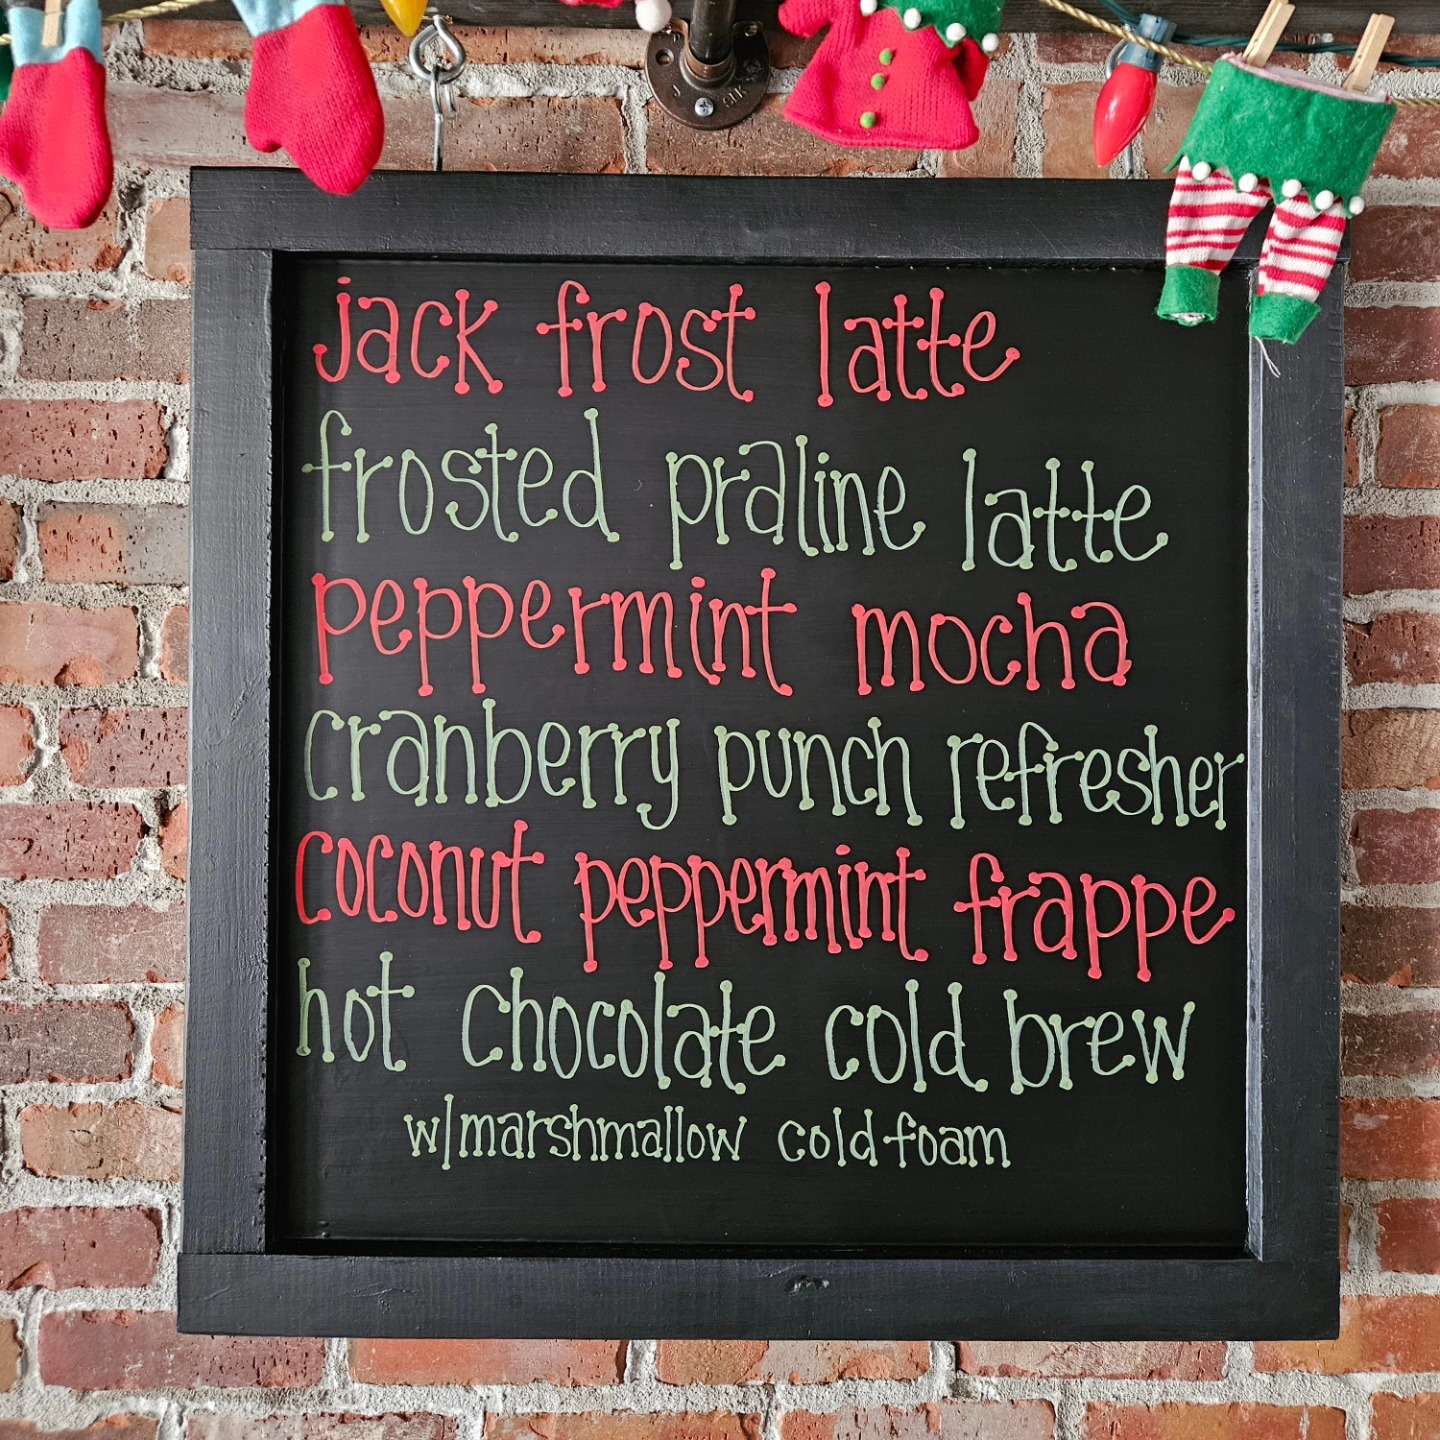 jack frost latte
frosted praline latte
peppermint mocha
cranberry punch refresher
coconut peppermint frappe
hot chocolate cold brew
w/marshmallow cold foam